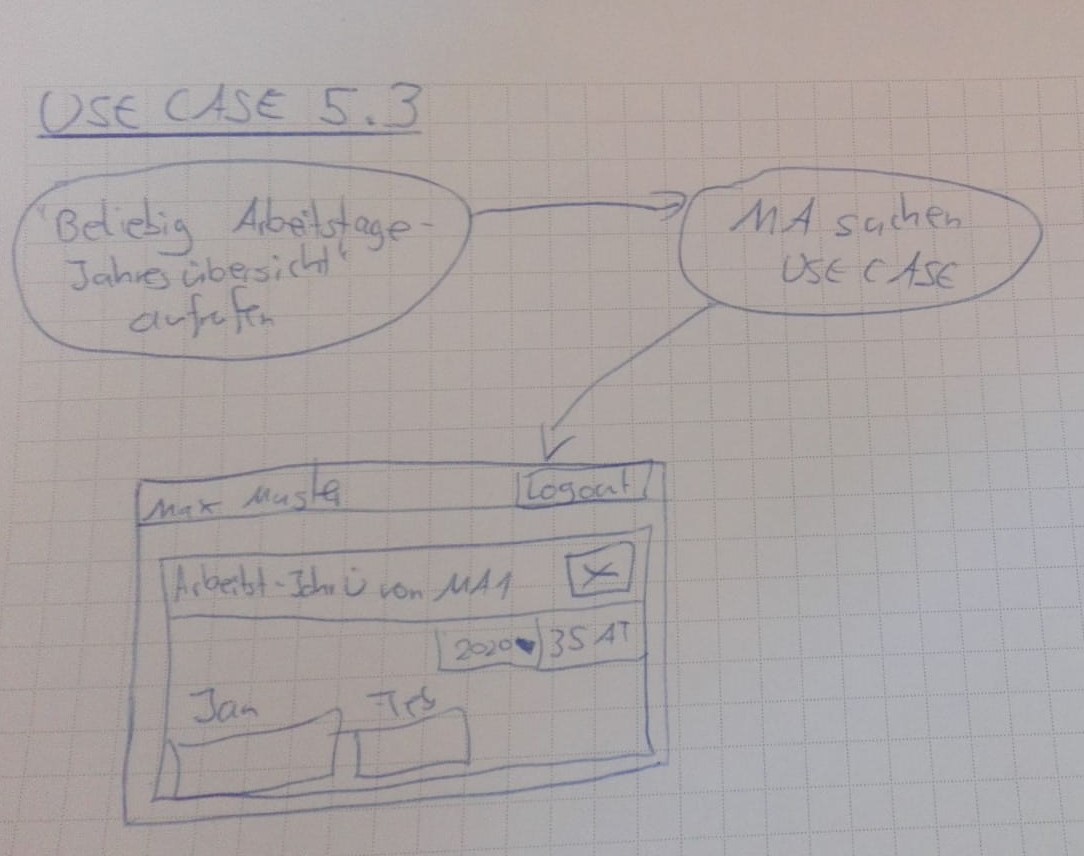 USE CASE 5.3
"Beliebig Arbeitstage-
Jahresübersicht"
aufrufen
MA suchen
USE CASE
Max Muster
Logout
Arbeitst-Jahr Ü von MA1
X
2020 35 AT
Jan Feb